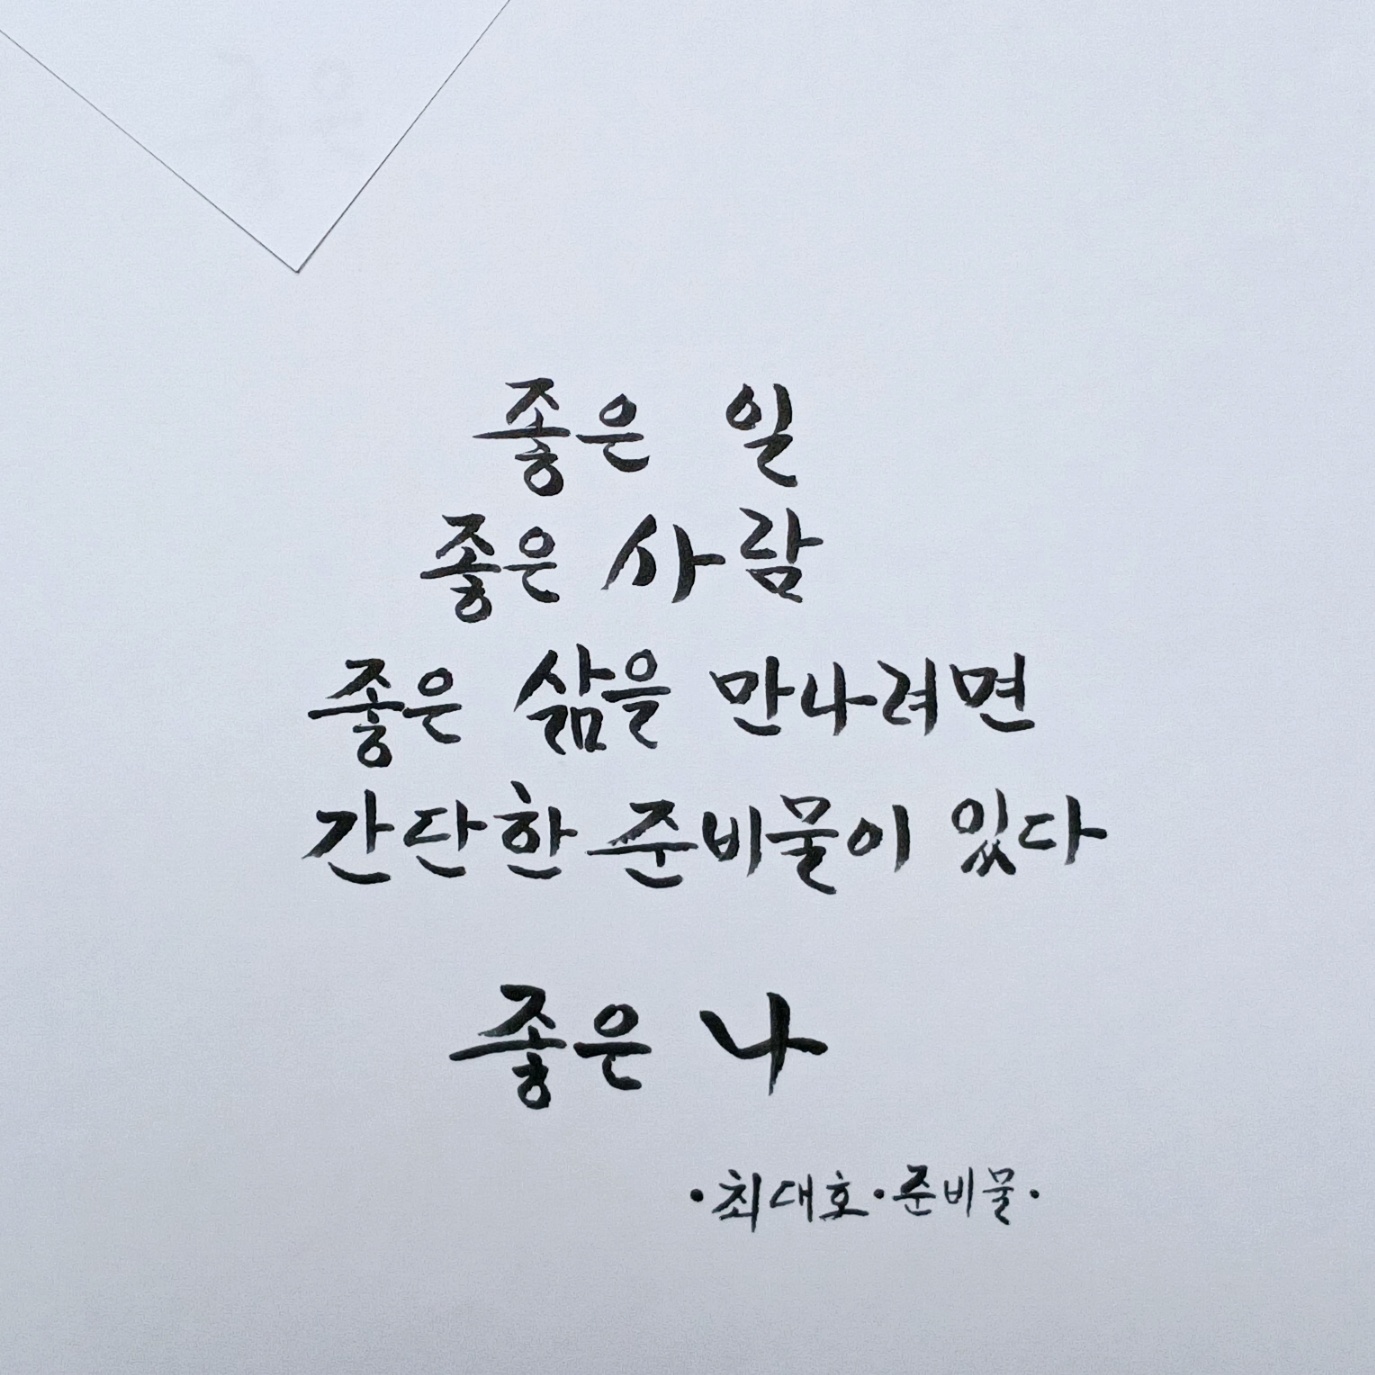 좋은 일
좋은 사람
좋은 삶을 만나려면
간단한 준비물이 있다
좋은 나
·최대호·준비물·